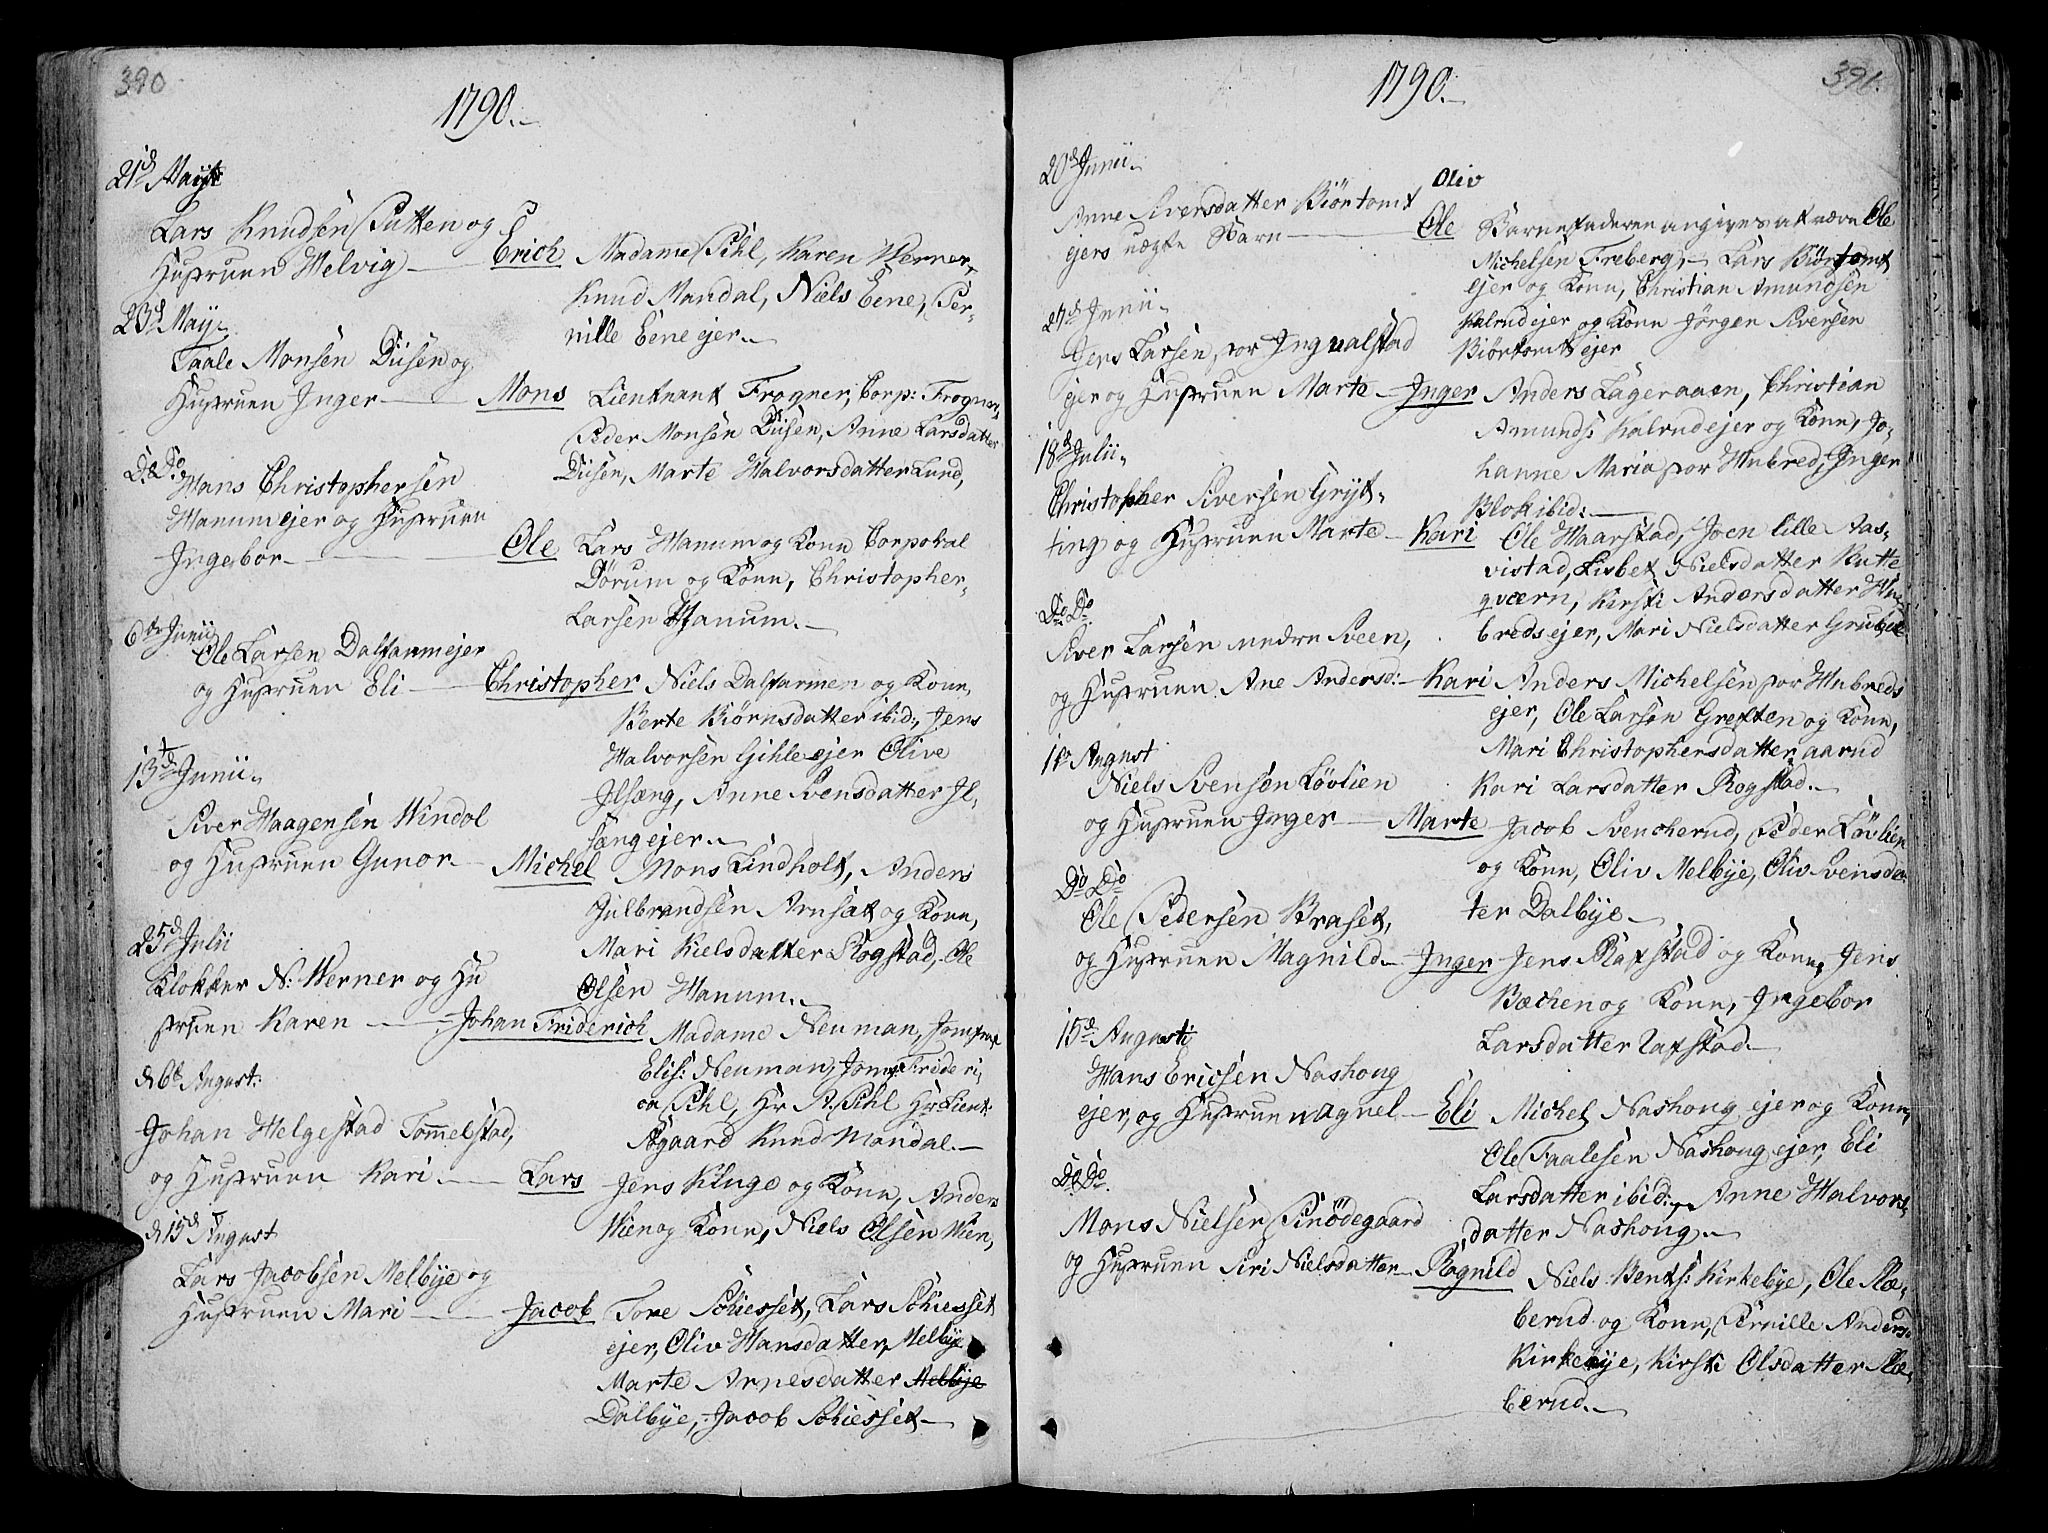 390
1790.
21d Maij
Lars Knudsen Sutten og
Hustruen Helvig — Erich Madame Pihl, Karen Werner,
Knud Mandal, Niels Eene, Per-
nille Eene ejer.
23d Maij
Taale Monsen Diisen og
Hustruen Inger — Mons Lieutnant Frogner, Corp: Frogner,
Peder Monsen Diisen, Anne Larsdatter
Diisen, Marte Halvorsdatter Lund,
Do Do
Hans Christophersen
Hanum ejer og Hustruen
Ingebor — Ole Lars Hanum og Konn Corporal
Dørum og Konn, Christopher
Larsen Hanum.
6te Junii
Ole Larsen Dalfarmejer
og Hustruen Eli — Christopher Niels Dalfarmen og Konn,
Berte Biørnsdatter ibid:, Jens
Halvorsen Gihle ejer Olive
Ilsæng, Anne Svensdatter Il-
sang ejer.
13de Junii
Siver Haagensen Windol
og Hustruen Gunor — Michel Mons Lindholt, Anders
Gulbrandsen Arnsæt og Konn,
Mari Kielsdatter Rogstad, Ole
Olsen Hanum.
25d Julii
Klokker N: Werner og Hu
struen Karen — Johan Friderich Madame Neuman, Jomfrue
Elis: Neuman, Jomf Frideri-
ca Pihl, Hr A. Pihl Hr Lieut:
Aagaard Knud Mandal.
d 6t August:
Johan Helgestad Tommelstad,
og Hustruen Kari. — Lars Jens Kluge og Konn, Anders
Wien og Konn, Niels Olsen Wien,
d 15d August
Lars Jacobsen Melbÿe og
Hustruen Mari — Jacob Tore Schiesset, Lars Schiesset
ejer, Oliv Hansdatter, Melbÿe
Marte Arnesdatter Melbÿe
Dalbÿe, Jacob Schiesset
391.
1790.
20d Junii
Oliv
Anne Siversdatter Biørtomt
ejers uægte Barn — Ole Barnefaderen angives at være Ole
Michelsen Freberg, Lars Biørtomt
ejer og Konn, Christian Amundsen
Kalrud ejer og Konn Jörgen Siversen
Biørtomt ejer
27d Junii
Jens Larsen, por Ingvalstad
ejer og Hustruen Marte — Inger Anders Lageraaen, Christian
Amunds: Kalrud ejer og Konn, Jo-
hanne Maria por Hubred, Inger
Blok ibid:
18d Julii
Christopher Siversen Grÿt-
ting og Hustruen Marte — Kari Ole Haarstad, Joen lille Aas-
vistad, Lisbet Nielsdatter Kutte
qværn, Kirsti Andersdatter Hu-
breds ejer, Mari Nielsdatter Grubek
Do Do
Siver Larsen nedre Sveen,
og Hustruen Ane Andersd: — Kari Anders Michelsen por Hubreds
ejer, Ole Larsen Greften og Konn,
Mari Christophersdatter aarud
Kari Larsdatter Rogstad.
1te August
Niels Svensen Løvlien
og Hustruen Inger — Marte Jacob Svencherud, Peder Løvlien
og Konn, Oliv Melbÿe, Oliv Svensda-
ter Dalbÿe
Do Do
Ole Pedersen Braset,
og Hustruen Magnild — Inger Jens Rafstad og Konn, Jens
Bæchen og Konn, Ingebor
Larsdatter Rafstad.
15d Augusti
Hans Ericsen Nashoug
ejer, og Hustruen agnel — Eli Michel Nashoug ejer og Konn,
Ole Taalesen Nashoug ejer, Eli
Larsdatter ibid:, Anne Halvors-
datter Nashoug.
Do Do
Mons Nielsen Prødegaard
og Hustruen Siri Nielsdatter — Rognild Niels Bents: Kirkebÿe, Ole Ræ-
berud og Konn, Pernille Anders-
Kirkebÿe, Kirsti Olsdatter Ræ-
berud.